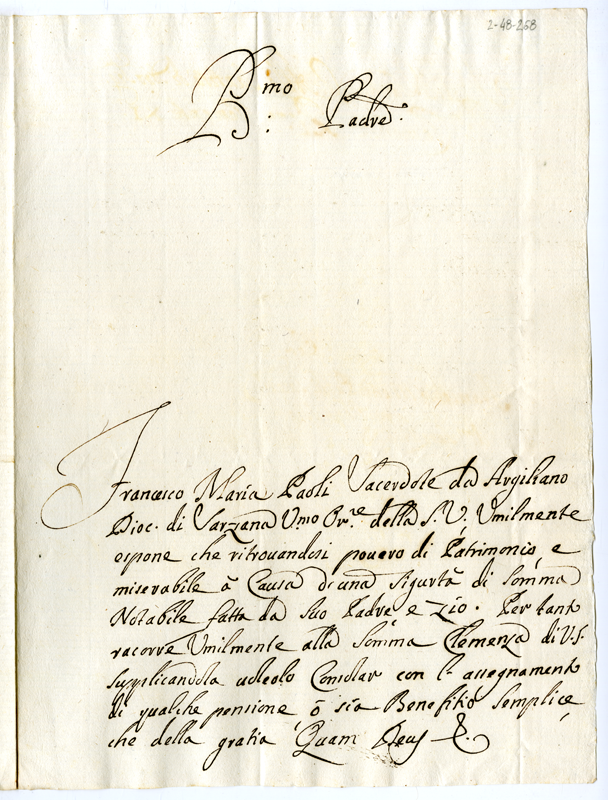 2-48-268
B.mo Padre.
Francesco Maria Paoli Sacerdote da Argiliano
Dioc. di Sarzana V.mo Or.re della S. V. Vmilmente
espone che ritrouandosi pouero di Patrimonio, e
miserabile à Causa di una Sigurtà di Somma
Notabile fatta da Suo Padre e Zio. Per tanto
racorre Vmilmente alla Somma Clemenza di V. S.
Supplicandola uolerlo Consolar con l'assegnamento
di qualche pensione ò sia Benefitio Semplice,
che della gratia Quam Deus &.